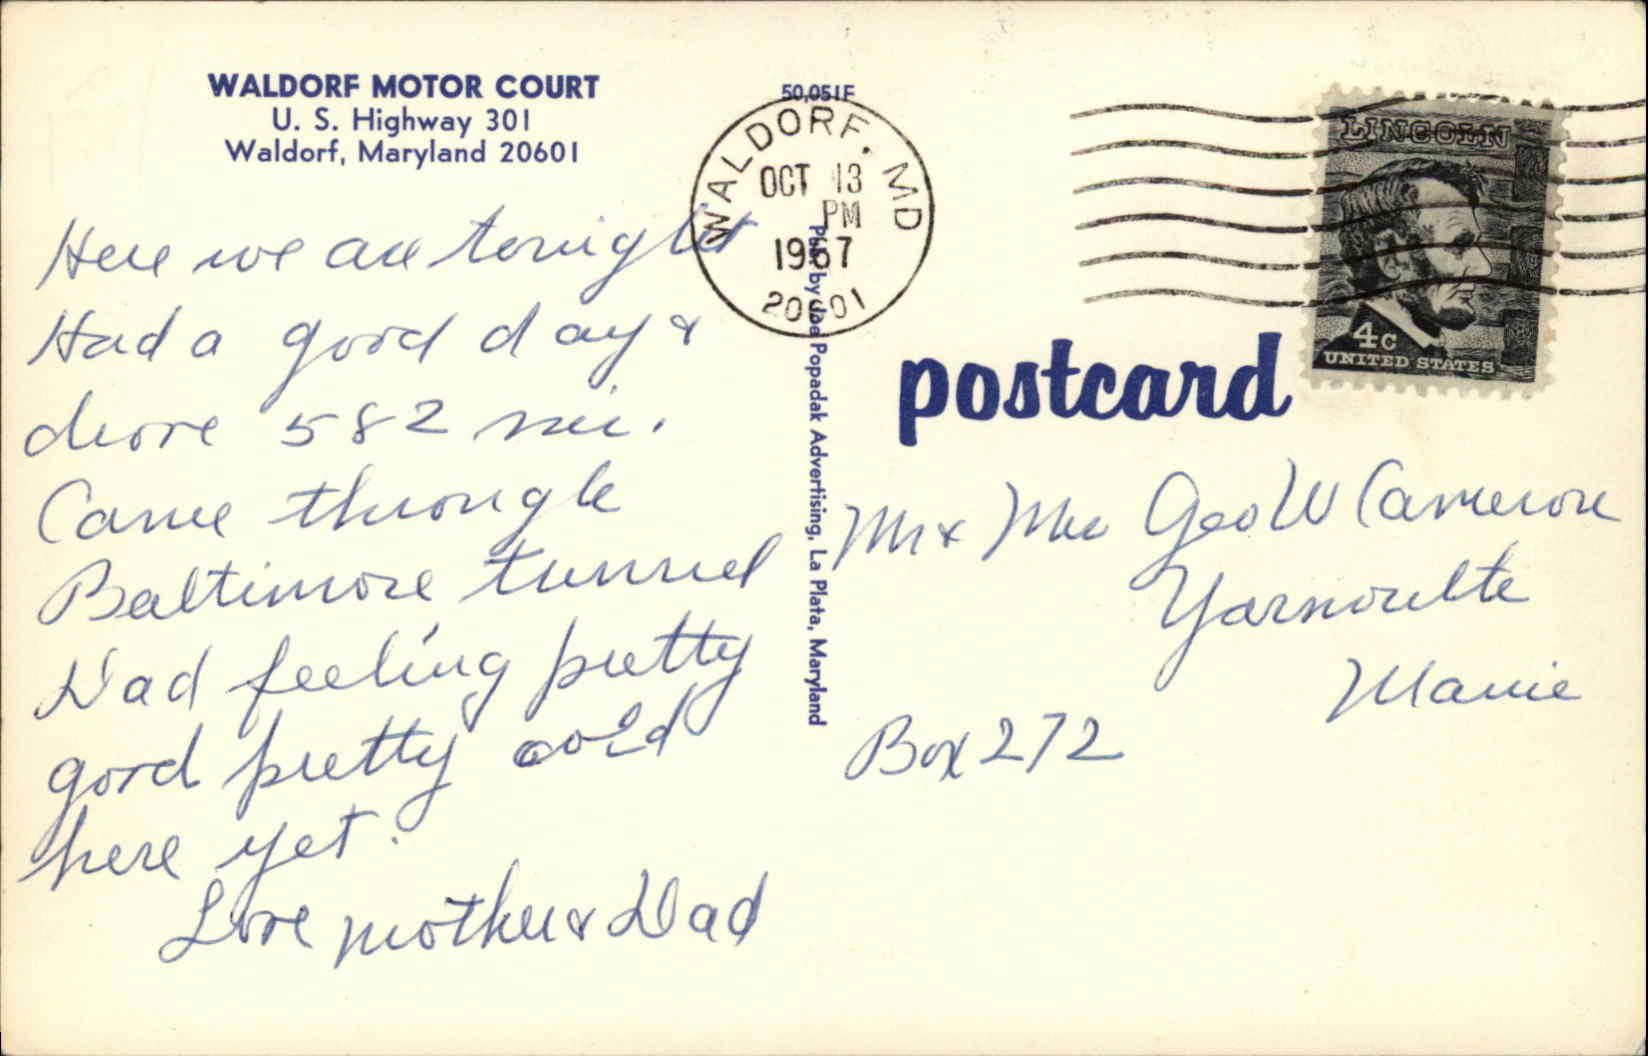 WALDORF MOTOR COURT
U. S. Highway 301
Waldorf, Maryland 20601
Here we are tonight
Had a good day &
drove 582 mi.
Came through
Baltimore tunnel
Dad feeling pretty
good pretty cold
here yet.
Love mother & Dad
50,051F
Pub. by Joe Popadak Advertising, La Plata, Maryland
WALDORF, MD
OCT 13
PM
1967
20601
LINCOLN
4c
UNITED STATES
postcard
Mr & Mrs Geo W Cameron
Yarmouth
Maine
Box 272